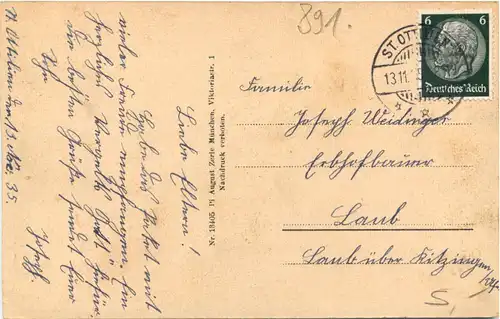 St. Ottilien den 13. Nov. 35.
Liebe Eltern!
Habe das Paket mit
vieler Freude empfangen. Ein
herzliches Vergelts Gott dafür.
Die besten Grüße sendet Euer
Sohn
Josef.
Nr. 13405 Pi August Zerle München, Viktoriastr. 1
Nachdruck verboten.
891.
ST. OTTILIEN
13.11.
6 6
Deutsches Reich
Familie
Joseph Weidinger
Erbhofbauer
Laub
Laub über Kitzingen
S,